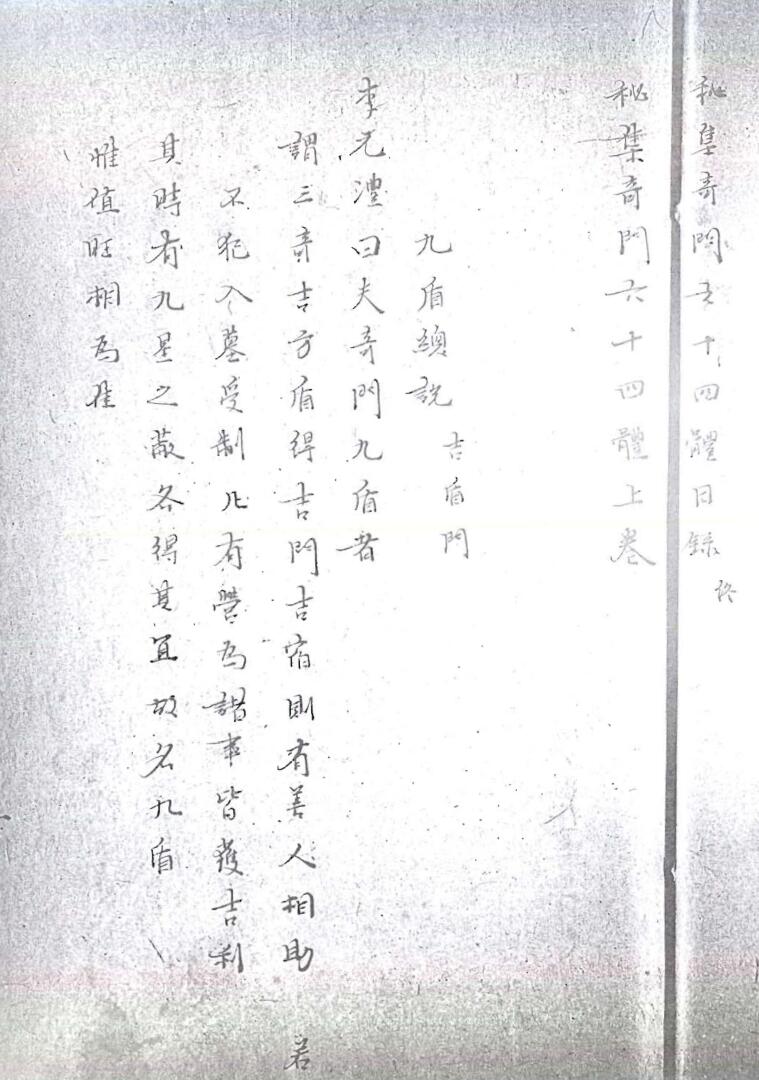 秘集奇門六十四體目錄 終
秘集奇門六十四體上卷
吉盾門
九盾總說
李元澧曰夫奇門九盾者
謂三奇吉方盾得吉門吉宿則有善人相助 若
不犯入墓受制凡有營為諸事皆獲吉利
其時有九星之蔽各得其宜故名九盾
惟值旺相為佳